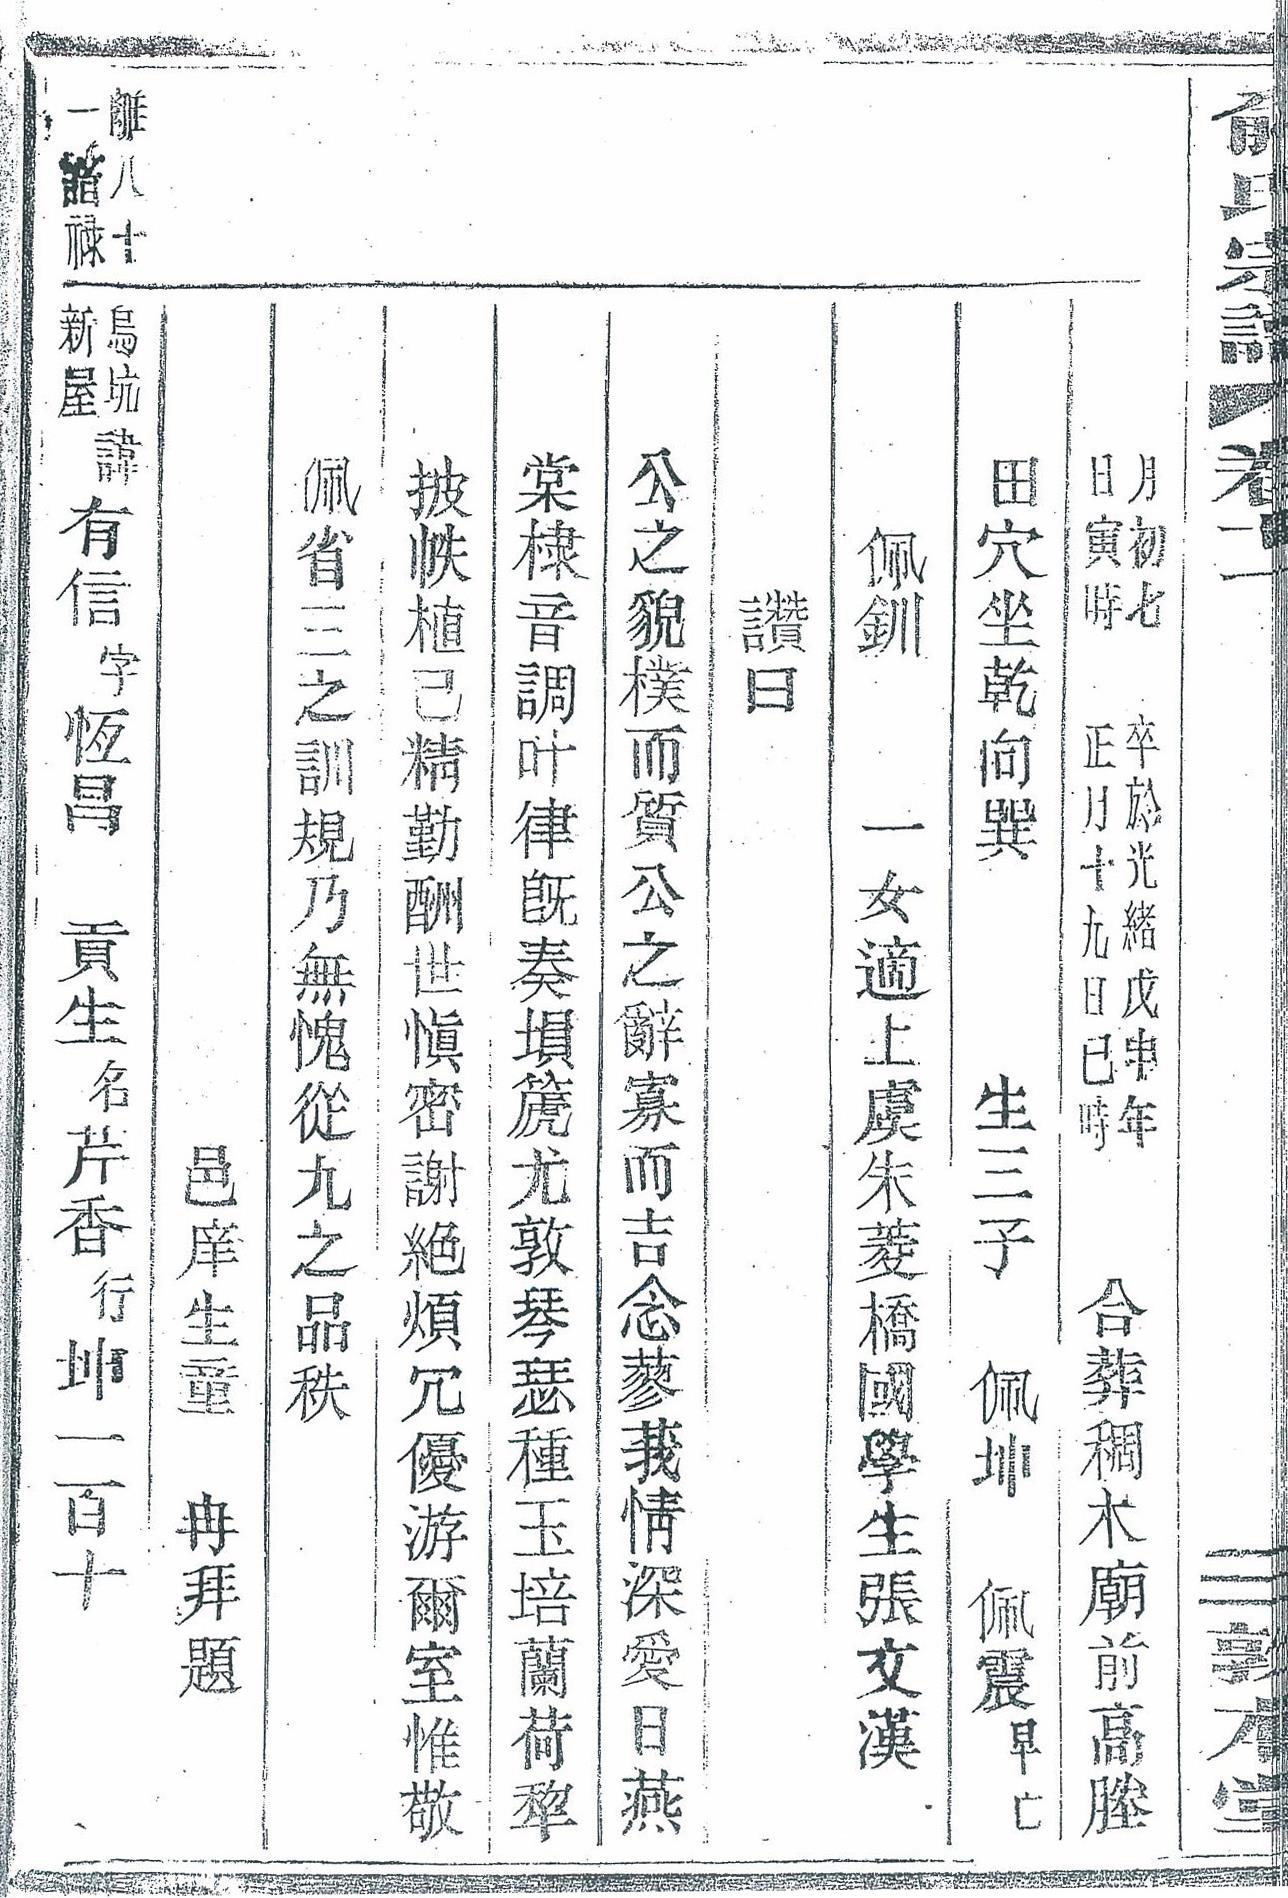 俞氏宗譜 卷十一 三 敦本堂
月初七
日寅時
卒於光緒戊申年
正月十九日巳時
合葬稠木廟前高塍
田穴坐乾向巽 生三子 佩坤 佩震早亡
佩釧 一女適上虞朱菱橋國學生張文漢
讚曰
公之貌樸而質公之辭寡而吉念蓼莪情深愛日燕
棠棣音調叶律旣奏塤篪尤敦琴瑟種玉培蘭荷犂
披帙植己精勤酬世愼密謝絕煩冗優游爾室惟敬
佩省三之訓規乃無愧從九之品秩
邑庠生童 冉拜題
離八十
一諧祿
烏坑
新屋
諱有信字恆昌 貢生名芹香行坤一百十